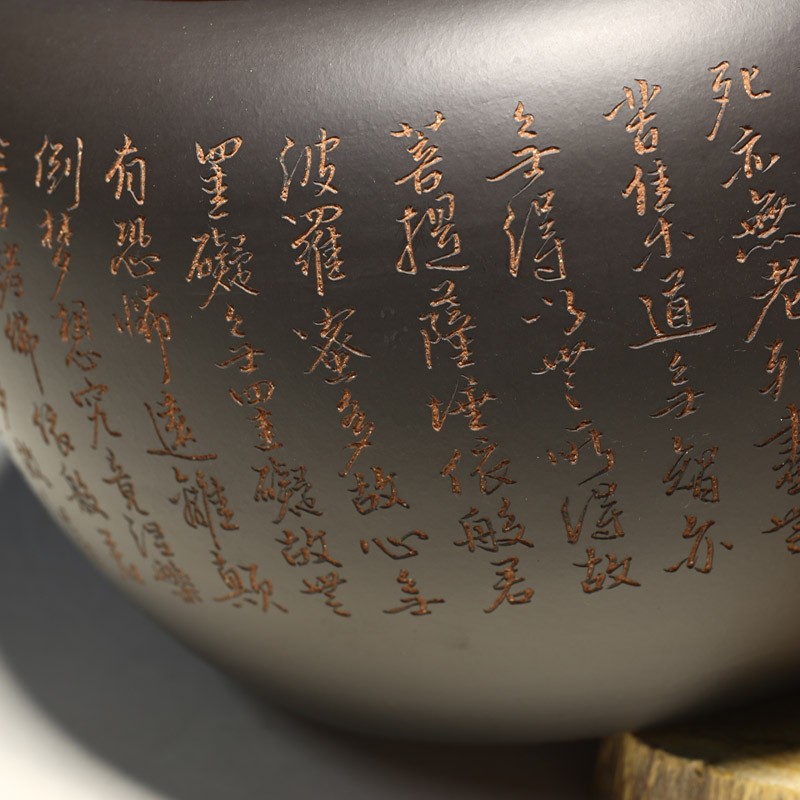 死亦無老死盡無
苦集道無智亦
無得以無所得故
菩提薩埵依般若
波羅蜜多故心無
罣礙無罣礙故無
有恐怖遠離顛
倒夢想究竟涅槃
三世諸佛依般